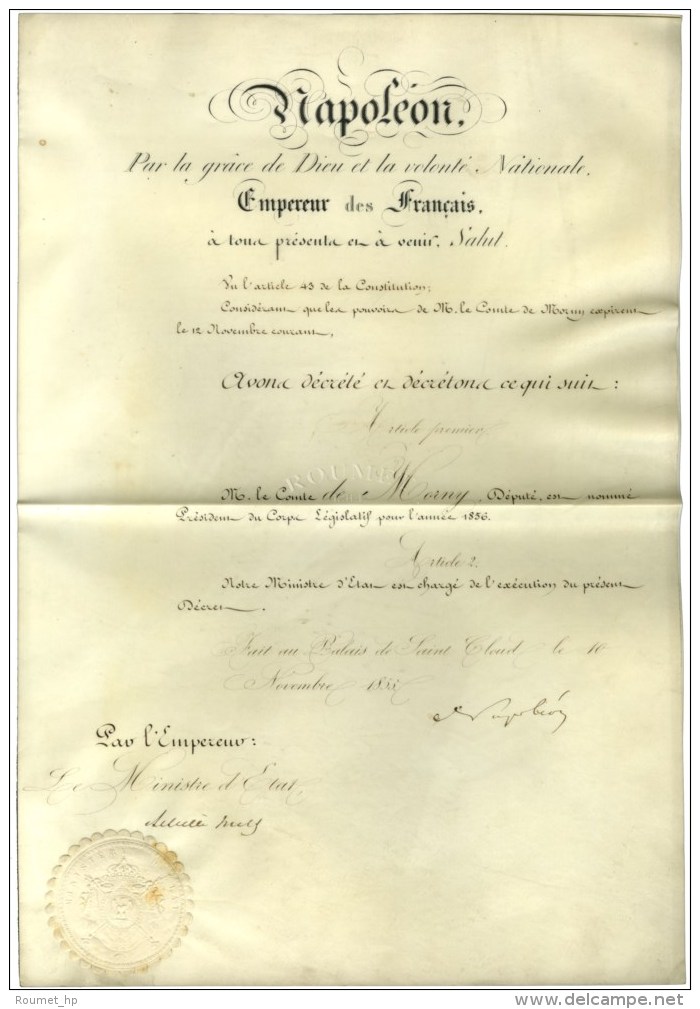 Napoléon,
Par la grâce de Dieu et la volonté Nationale,
Empereur des Français,
à tous présents et à venir, Salut.
Vu l'article 43 de la Constitution;
Considérant que les pouvoirs de M. le Comte de Morny expirent
le 12 Novembre courant,
Avons décrété et décrétons ce qui suit :
Article premier
ROUMET
M. le Comte de Morny, Député, est nommé
Président du Corps Législatif pour l'année 1856.
Article 2.
Notre Ministre d'Etat est chargé de l'exécution du présent
Décret.
Fait au Palais de Saint Cloud le 10
Novembre 1855
Napoléon
Par l'Empereur:
Le Ministre d'Etat,
Achille
Roumet_hp
delcampe.net